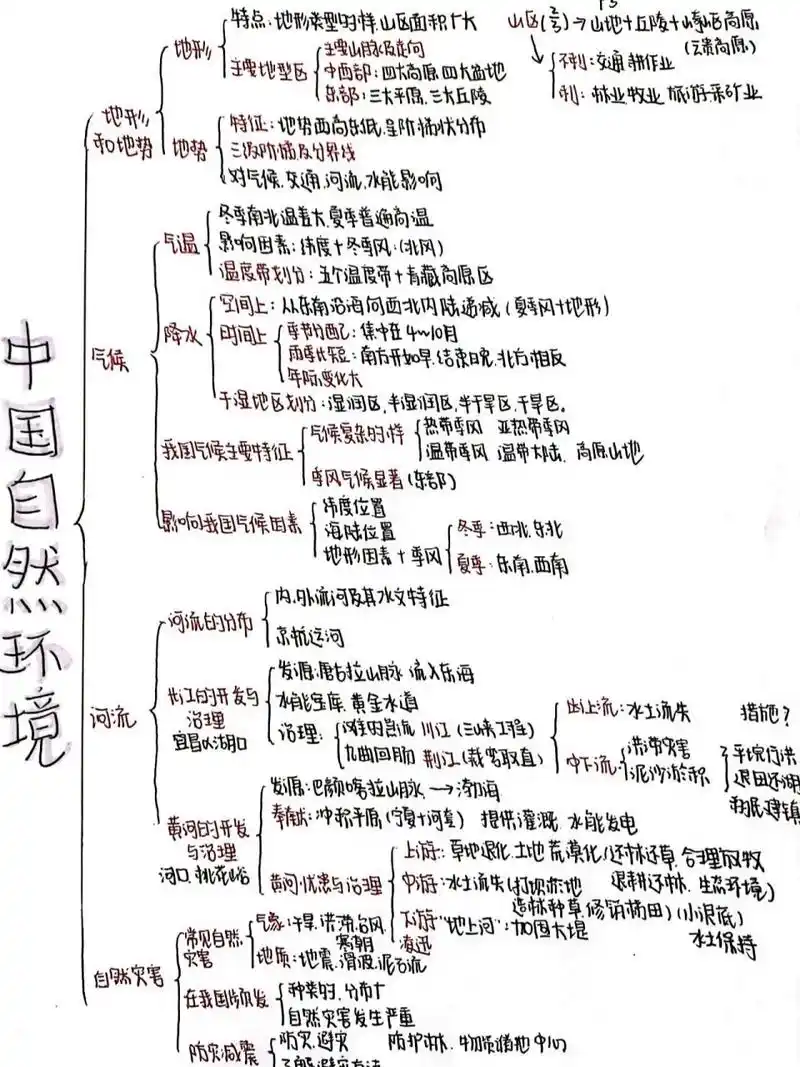 中国自然环境
地形和地势
地形
特点:地形类型多样,山区面积广大
山区(2/3)→山地+丘陵+崎岖高原
(云贵高原)
不利:交通 耕作业
利:林业 牧业 旅游 采矿业
主要地型区
主要山脉及走向
中西部:四大高原 四大盆地
东部:三大平原、三大丘陵
地势
特征:地势西高东低,呈阶梯状分布
三级阶梯及分界线
对气候、交通、河流、水能影响
气候
气温
冬季南北温差大,夏季普遍高温
影响因素:纬度+冬季风:(北风)
温度带划分:五个温度带+青藏高原区
降水
空间上:从东南沿海向西北内陆递减(夏季风+地形)
时间上
季节分配:集中在4~10月
雨季长短:南方开始早,结束晚,北方相反
年际变化大
干湿地区划分:湿润区,半湿润区,半干旱区,干旱区。
我国气候主要特征
气候复杂多样
热带季风 亚热带季风
温带季风 温带大陆 高原山地
季风气候显著(东部)
影响我国气候因素
纬度位置
海陆位置
地形因素+季风
冬季:西北、东北
夏季:东南、西南
河流
河流的分布
内、外流河及其水文特征
京杭运河
长江的开发与治理
宜昌 湖口
发源:唐古拉山脉 流入东海
水能宝库、黄金水道
治理:
滩多急流 川江(三峡工程)
九曲回肠 荆江(裁弯取直)
上流:水土流失 措施?
中下流:
洪涝灾害
泥沙淤积
平垸行洪
退田还湖
移民建镇
黄河的开发与治理
河口、桃花峪
发源:巴颜喀拉山脉→渤海
奉献:冲积平原(宁夏+河套) 提供灌溉、水能发电
黄河忧患与治理
上游:草地退化、土地荒漠化(还林还草、合理放牧
中游:水土流失(打坝淤地 退耕还林、生态环境)
造林种草,修梯田)(小浪底)
下游"地上河":加固大堤
凌汛
水土保持
自然灾害
常见自然灾害
气象:干旱、洪涝、台风、
寒潮
地质:地震、滑坡、泥石流
在我国频发
种类多、分布广
自然灾害发生严重
防灾减震
防灾、避灾 防护林、物质储备中心
了解避灾方法